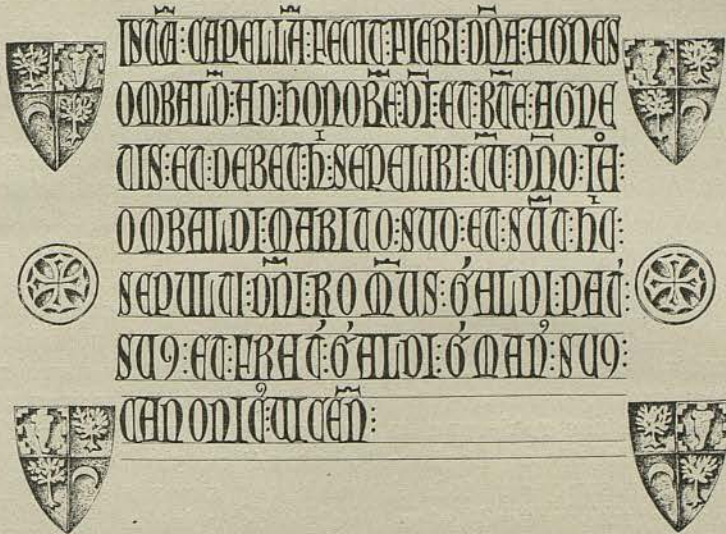 ISTĀ:CAPELLĀ:FECIT:FIERI:DN̄A:AGNES
OMBALD̄:AD:hONORĒ:DĪ:ET:BT̄E:AGNE
TIS:ET:DEBET:hⁱ:SEPELIRI:CŪ:DN̄O:IA°:
OMBALDI:MARITO:SUO:ET:SŪT:hⁱC:
SEPULTI:DN̄I:ROM̄US:G̓ALDI:PAT̓:
SUꝰ:ET:FRAT̓:G̓ALDI:G̓MANꝰ:SUꝰ:
CANONICꝰ:VICEN̄: